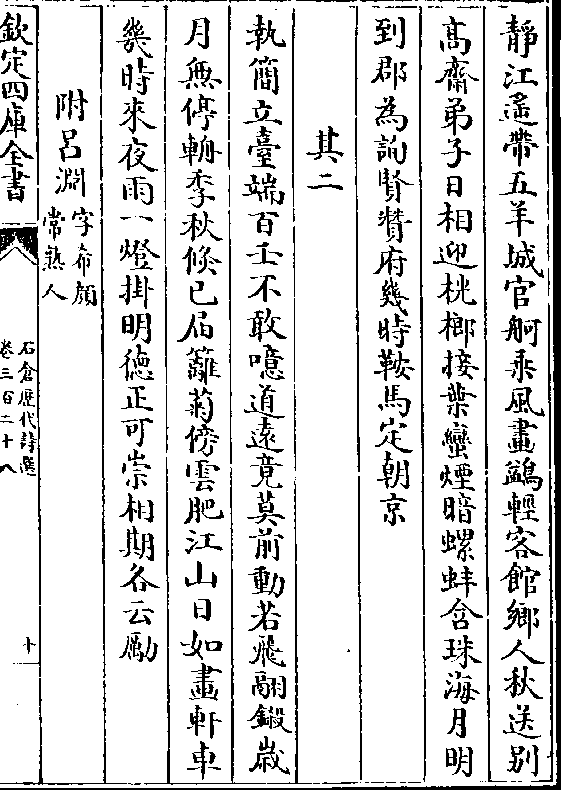 靜江遙帶五羊城官舸乘風畫鷁輕客館鄉人秋送别
髙齋弟子日相迎桄榔接葉蠻煙暗螺蚌含珠海月明
到郡為詢賢賛府幾時鞍馬定朝京
其二
執簡立臺端百壬不敢噫道遠竟莫前動若飛翮鎩歳
月無停輈季秋候已屆籬菊傍雲肥江山日如畫軒車
幾時來夜雨一燈掛明德正可崇相期各云勵
附吕淵字希顔常熟人
欽定四庫全書
石倉歴代詩選
卷三百二十八
十